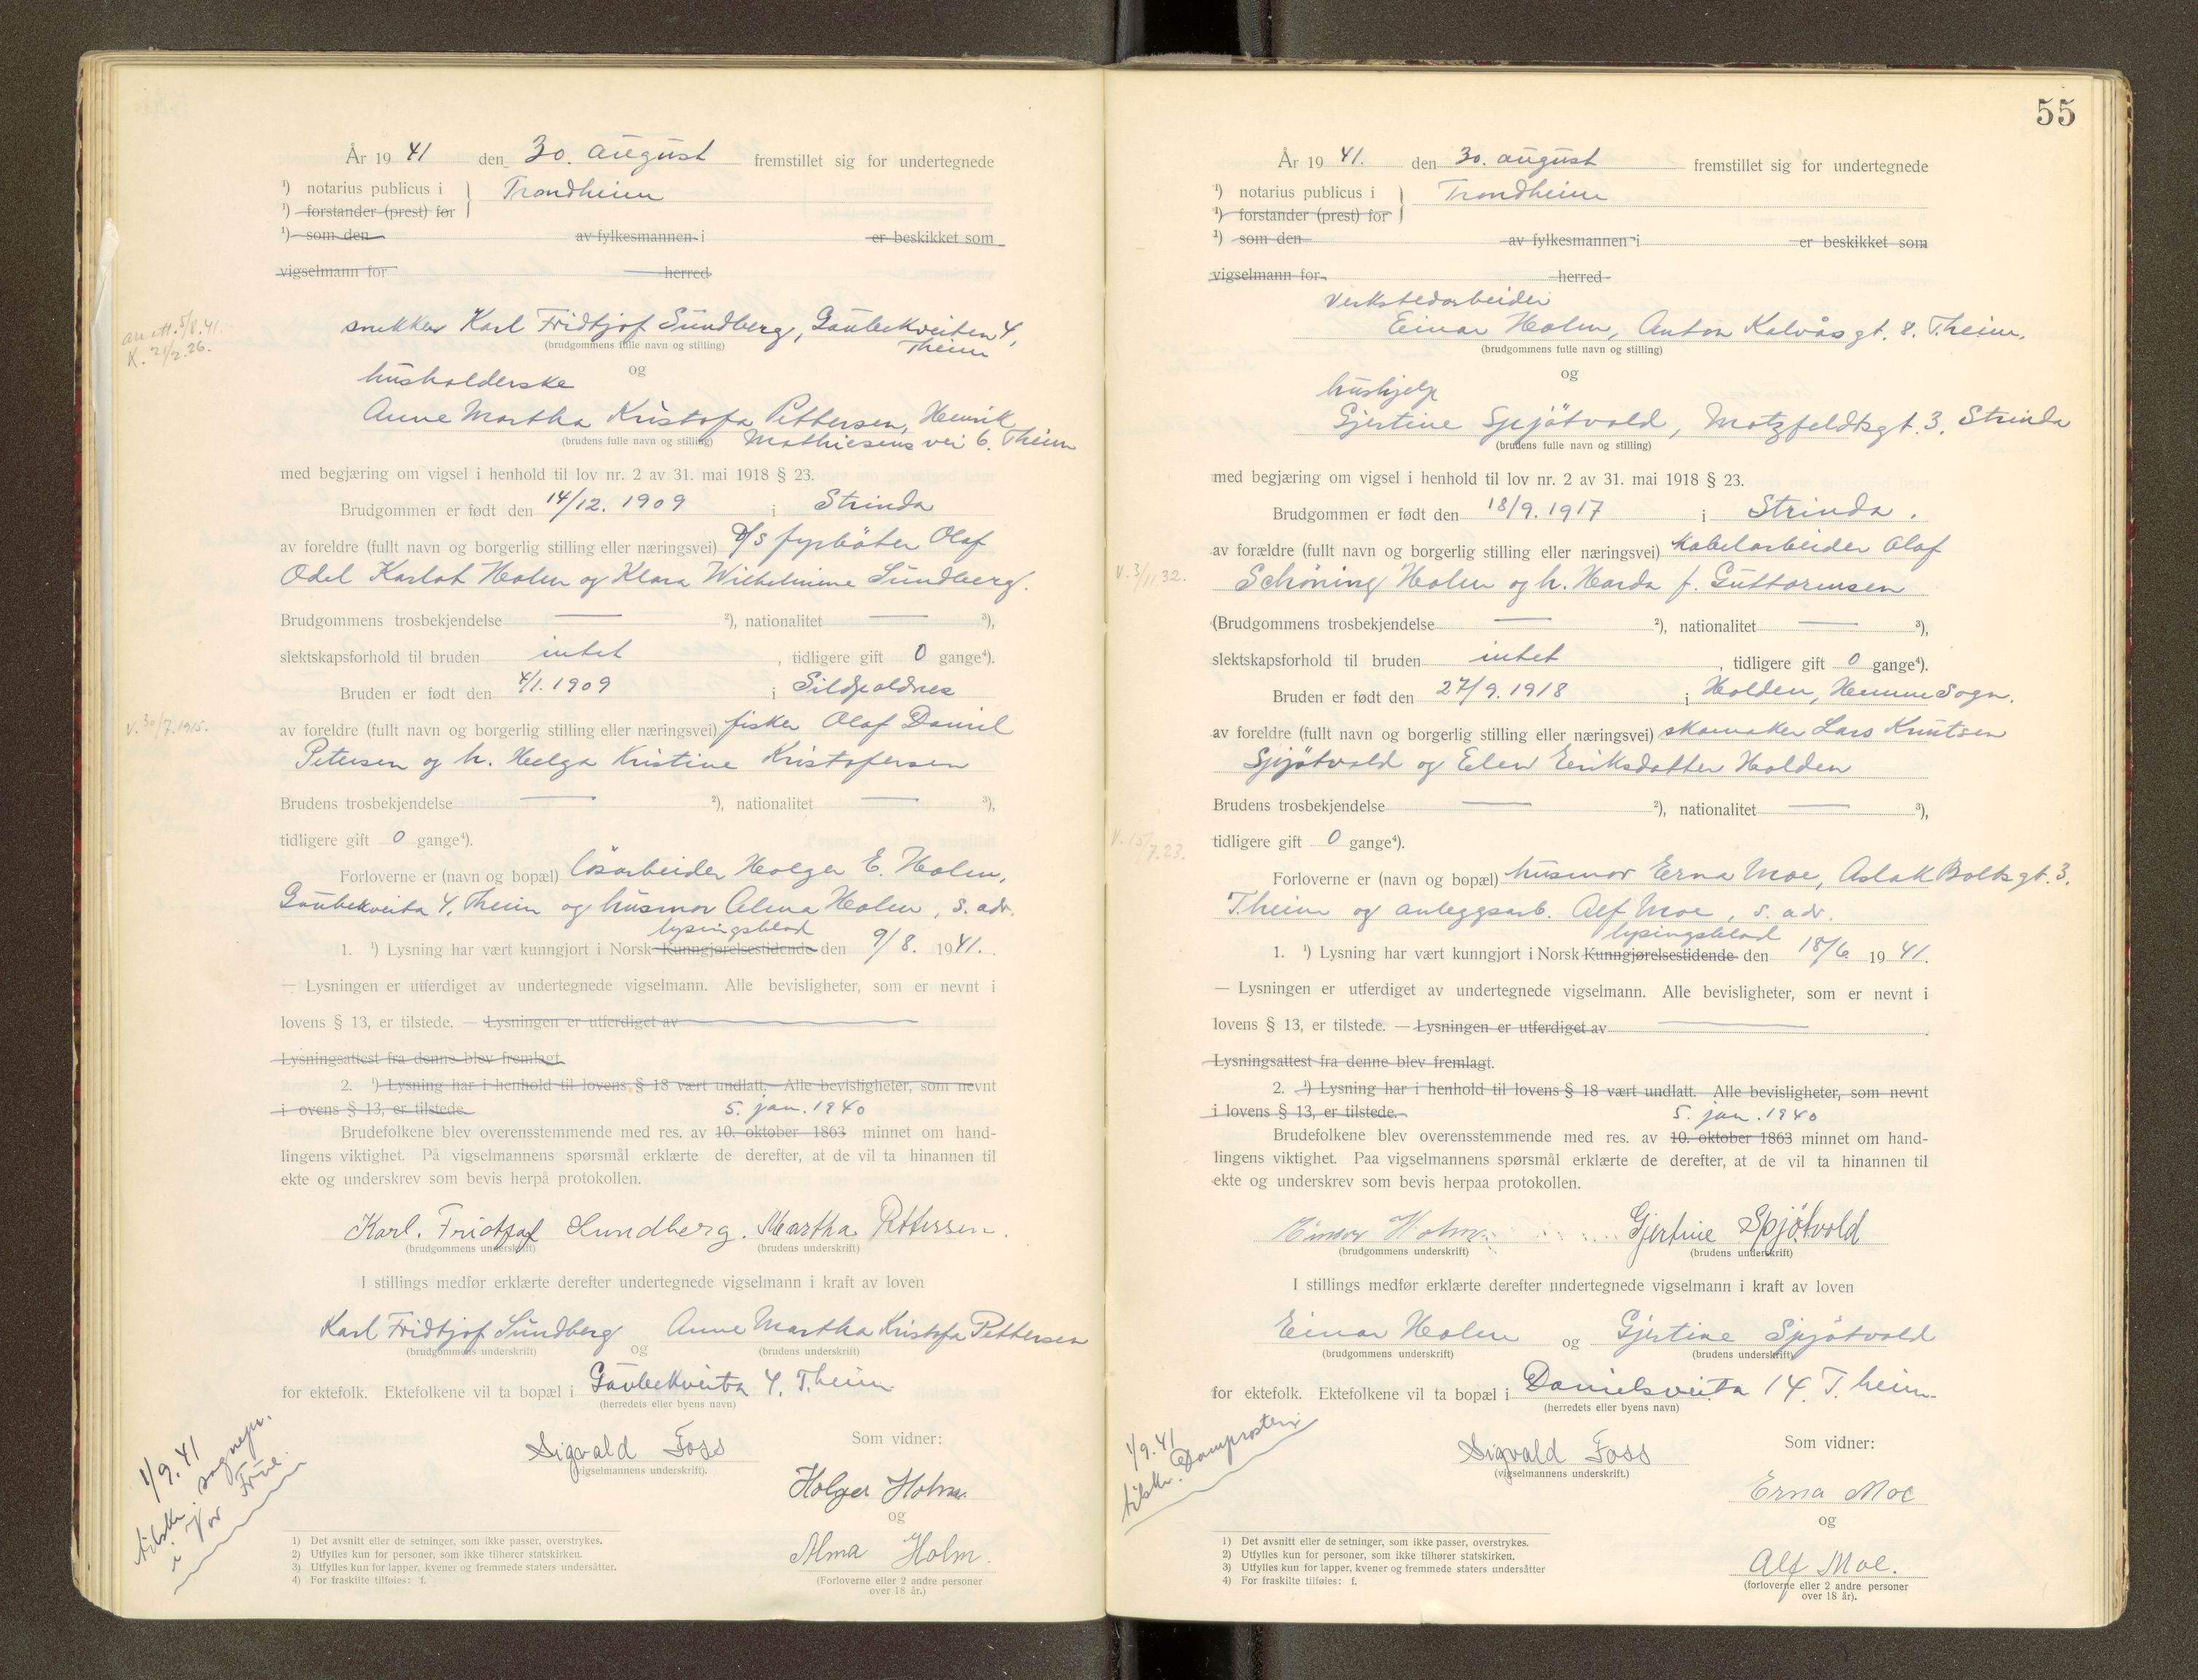 År 1941 den 30. august fremstillet sig for undertegnede
¹) notarius publicus i Trondheim
¹) forstander (prest) for
¹) som den av fylkesmannen i er beskikket som
vigselmann for herred
snekker Karl Fridtjof Sundberg, Gaubekveiten 4,
(brudgommens fulle navn og stilling) Theim
5/8.41.
K. 21/2.26.
og
husholderske
Anne Martha Kristofa Pettersen, Henrik
(brudens fulle navn og stilling) Mathiesens vei 6. Theim
med begjæring om vigsel i henhold til lov nr. 2 av 31. mai 1918 § 23.
Brudgommen er født den 14/12. 1909 i Strinda
av foreldre (fullt navn og borgerlig stilling eller næringsvei) D/S fyrbøter Olaf
Odel Karlot Holm og Klara Wilhelmine Sundberg.
Brudgommens trosbekjendelse — ²), nationalitet — ³),
slektskapsforhold til bruden intet, tidligere gift 0 gange⁴).
Bruden er født den 4/1. 1909 i Sildpolnes
V. 30/7.1915.
av foreldre (fullt navn og borgerlig stilling eller næringsvei) fisker Olaf Daniel
Petersen og h. Helga Kristine Kristofersen
Brudens trosbekjendelse — ²), nationalitet — ³),
tidligere gift 0 gange⁴).
Forloverne er (navn og bopæl) løsarbeider Holger E. Holm,
Gaubekveita 4, Theim og husmor Alma Holm, s. adr.
lysingsblad
1. ¹) Lysning har vært kunngjort i Norsk Kunngjørelsestidende den 9/8. 1941.
— Lysningen er utferdiget av undertegnede vigselmann. Alle bevisligheter, som er nevnt i
lovens § 13, er tilstede. — Lysningen er utferdiget av
Lysningsattest fra denne blev fremlagt
2. ¹) Lysning har i henhold til lovens § 18 vært undlatt. Alle bevisligheter, som nevnt
i ovens § 13, er tilstede. 5. jan. 1940
Brudefolkene blev overensstemmende med res. av 10. oktober 1863 minnet om hand-
lingens viktighet. På vigselmannens spørsmål erklærte de derefter, at de vil ta hinannen til
ekte og underskrev som bevis herpå protokollen.
Karl. Fridtjof Sundberg. Martha Pettersen.
(brudgommens underskrift) (brudens underskrift)
I stillings medfør erklærte derefter undertegnede vigselmann i kraft av loven
Karl Fridtjof Sundberg og Anne Martha Kristofa Pettersen
(brudgommens underskrift) (brudens underskrift)
for ektefolk. Ektefolkene vil ta bopæl i Gaubekveita 4, T.heim
(herredets eller byens navn)
1/9.41
tilskr. sognepr.
i Vor Frue.
Sigvald Foss
(vigselmannens underskrift).
Som vidner:
Holger Holm.
og
Alma Holm.
(Forloverne eller 2 andre personer
over 18 år.)
1) Det avsnitt eller de setninger, som ikke passer, overstrykes.
2) Utfylles kun for personer, som ikke tilhører statskirken.
3) Utfylles kun for lapper, kvener og fremmede staters undersåtter.
4) For fraskilte tilføies: f.
55
År 1941. den 30. august fremstillet sig for undertegnede
¹) notarius publicus i Trondheim
¹) forstander (prest) for
¹) som den av fylkesmannen i er beskikket som
vigselmann for herred
Verkstedarbeider
Einar Holm, Anton Kalvås gt. 8. T.heim,
(brudgommens fulle navn og stilling)
og
hushjelp
Gjertine Spjøtvold, Motzfeldtsgt. 3, Strinda
(brudens fulle navn og stilling)
med begjæring om vigsel i henhold til lov nr. 2 av 31. mai 1918 § 23.
Brudgommen er født den 18/9. 1917 i Strinda.
av forældre (fullt navn og borgerlig stilling eller næringsvei) Kabelarbeider Olaf
V. 3/11 32.
Schöning Holm og h. Harda f. Guttormsen
(Brudgommens trosbekjendelse — ²), nationalitet — ³),
slektskapsforhold til bruden intet, tidligere gift 0 gange⁴).
Bruden er født den 27/9. 1918 i Holden, Hemne Sogn.
av foreldre (fullt navn og borgerlig stilling eller næringsvei) skomaker Lars Knutsen
Spjøtvold og Elen Eriksdatter Holden
Brudens trosbekjendelse — ²), nationalitet — ³),
V. 15/7.23.
tidligere gift 0 gange⁴).
Forloverne er (navn og bopæl) husmor Erna Moe, Aslak Bolts gt. 3.
T.heim og anleggsarb. Alf Moe, s. adr.
lysingsblad
1. ¹) Lysning har vært kunngjort i Norsk Kunngjørelsestidende den 18/6 1941.
— Lysningen er utferdiget av undertegnede vigselmann. Alle bevisligheter, som er nevnt i
lovens § 13, er tilstede. — Lysningen er utferdiget av
Lysningsattest fra denne blev fremlagt.
2. ¹) Lysning har i henhold til lovens § 18 vært undlatt. Alle bevisligheter, som nevnt
i lovens § 13, er tilstede. 5. jan. 1940
Brudefolkene blev overensstemmende med res. av 10. oktober 1863 minnet om hand-
lingens viktighet. Paa vigselmannens spørsmål erklærte de derefter, at de vil ta hinannen til
ekte og underskrev som bevis herpaa protokollen.
Einar Holm. Gjertine Spjøtvold
(brudgommens underskrift) (brudens underskrift)
I stillings medfør erklærte derefter undertegnede vigselmann i kraft av loven
Einar Holm og Gjertine Spjøtvold
(brudgommens underskrift) (brudens underskrift)
for ektefolk. Ektefolkene vil ta bopæl i Danielsveita 14 T. heim.
(herredets eller byens navn)
1/9.41
tilskr. Domprosten
Sigvald Foss
(vigselmannens underskrift.)
Som vidner:
Erna Moe
og
Alf Moe.
(forloverne eller 2 andre personer
over 18 år).
1) Det avsnitt eller de setninger, som ikke passer, overstrykes.
2) Utfylles kun for personer, som ikke tilhører statskirken.
3) Utfylles kun for lapper, kvener og fremmede staters undersåtter
4) For fraskilte tilføies: f.